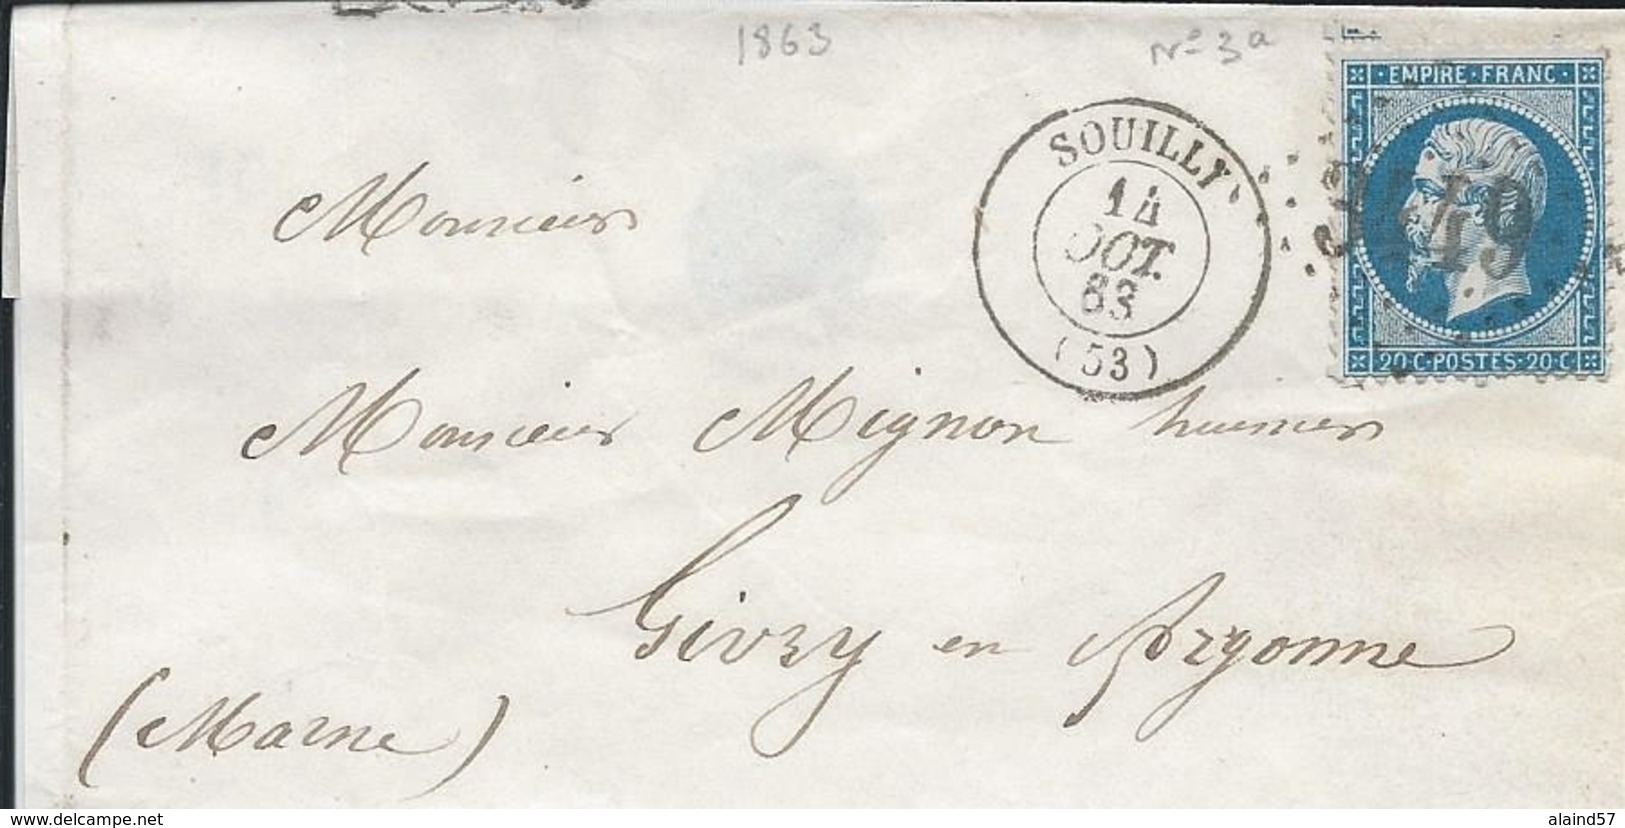 1863
No 3a
EMPIRE · FRANC ·
SOUILLY
14
OCT.
63
(53)
20 C · POSTES · 20 C
Monsieur
Monsieur Mignon huissier
Givry en Argonne
(Marne)
© delcampe.net
alaind57